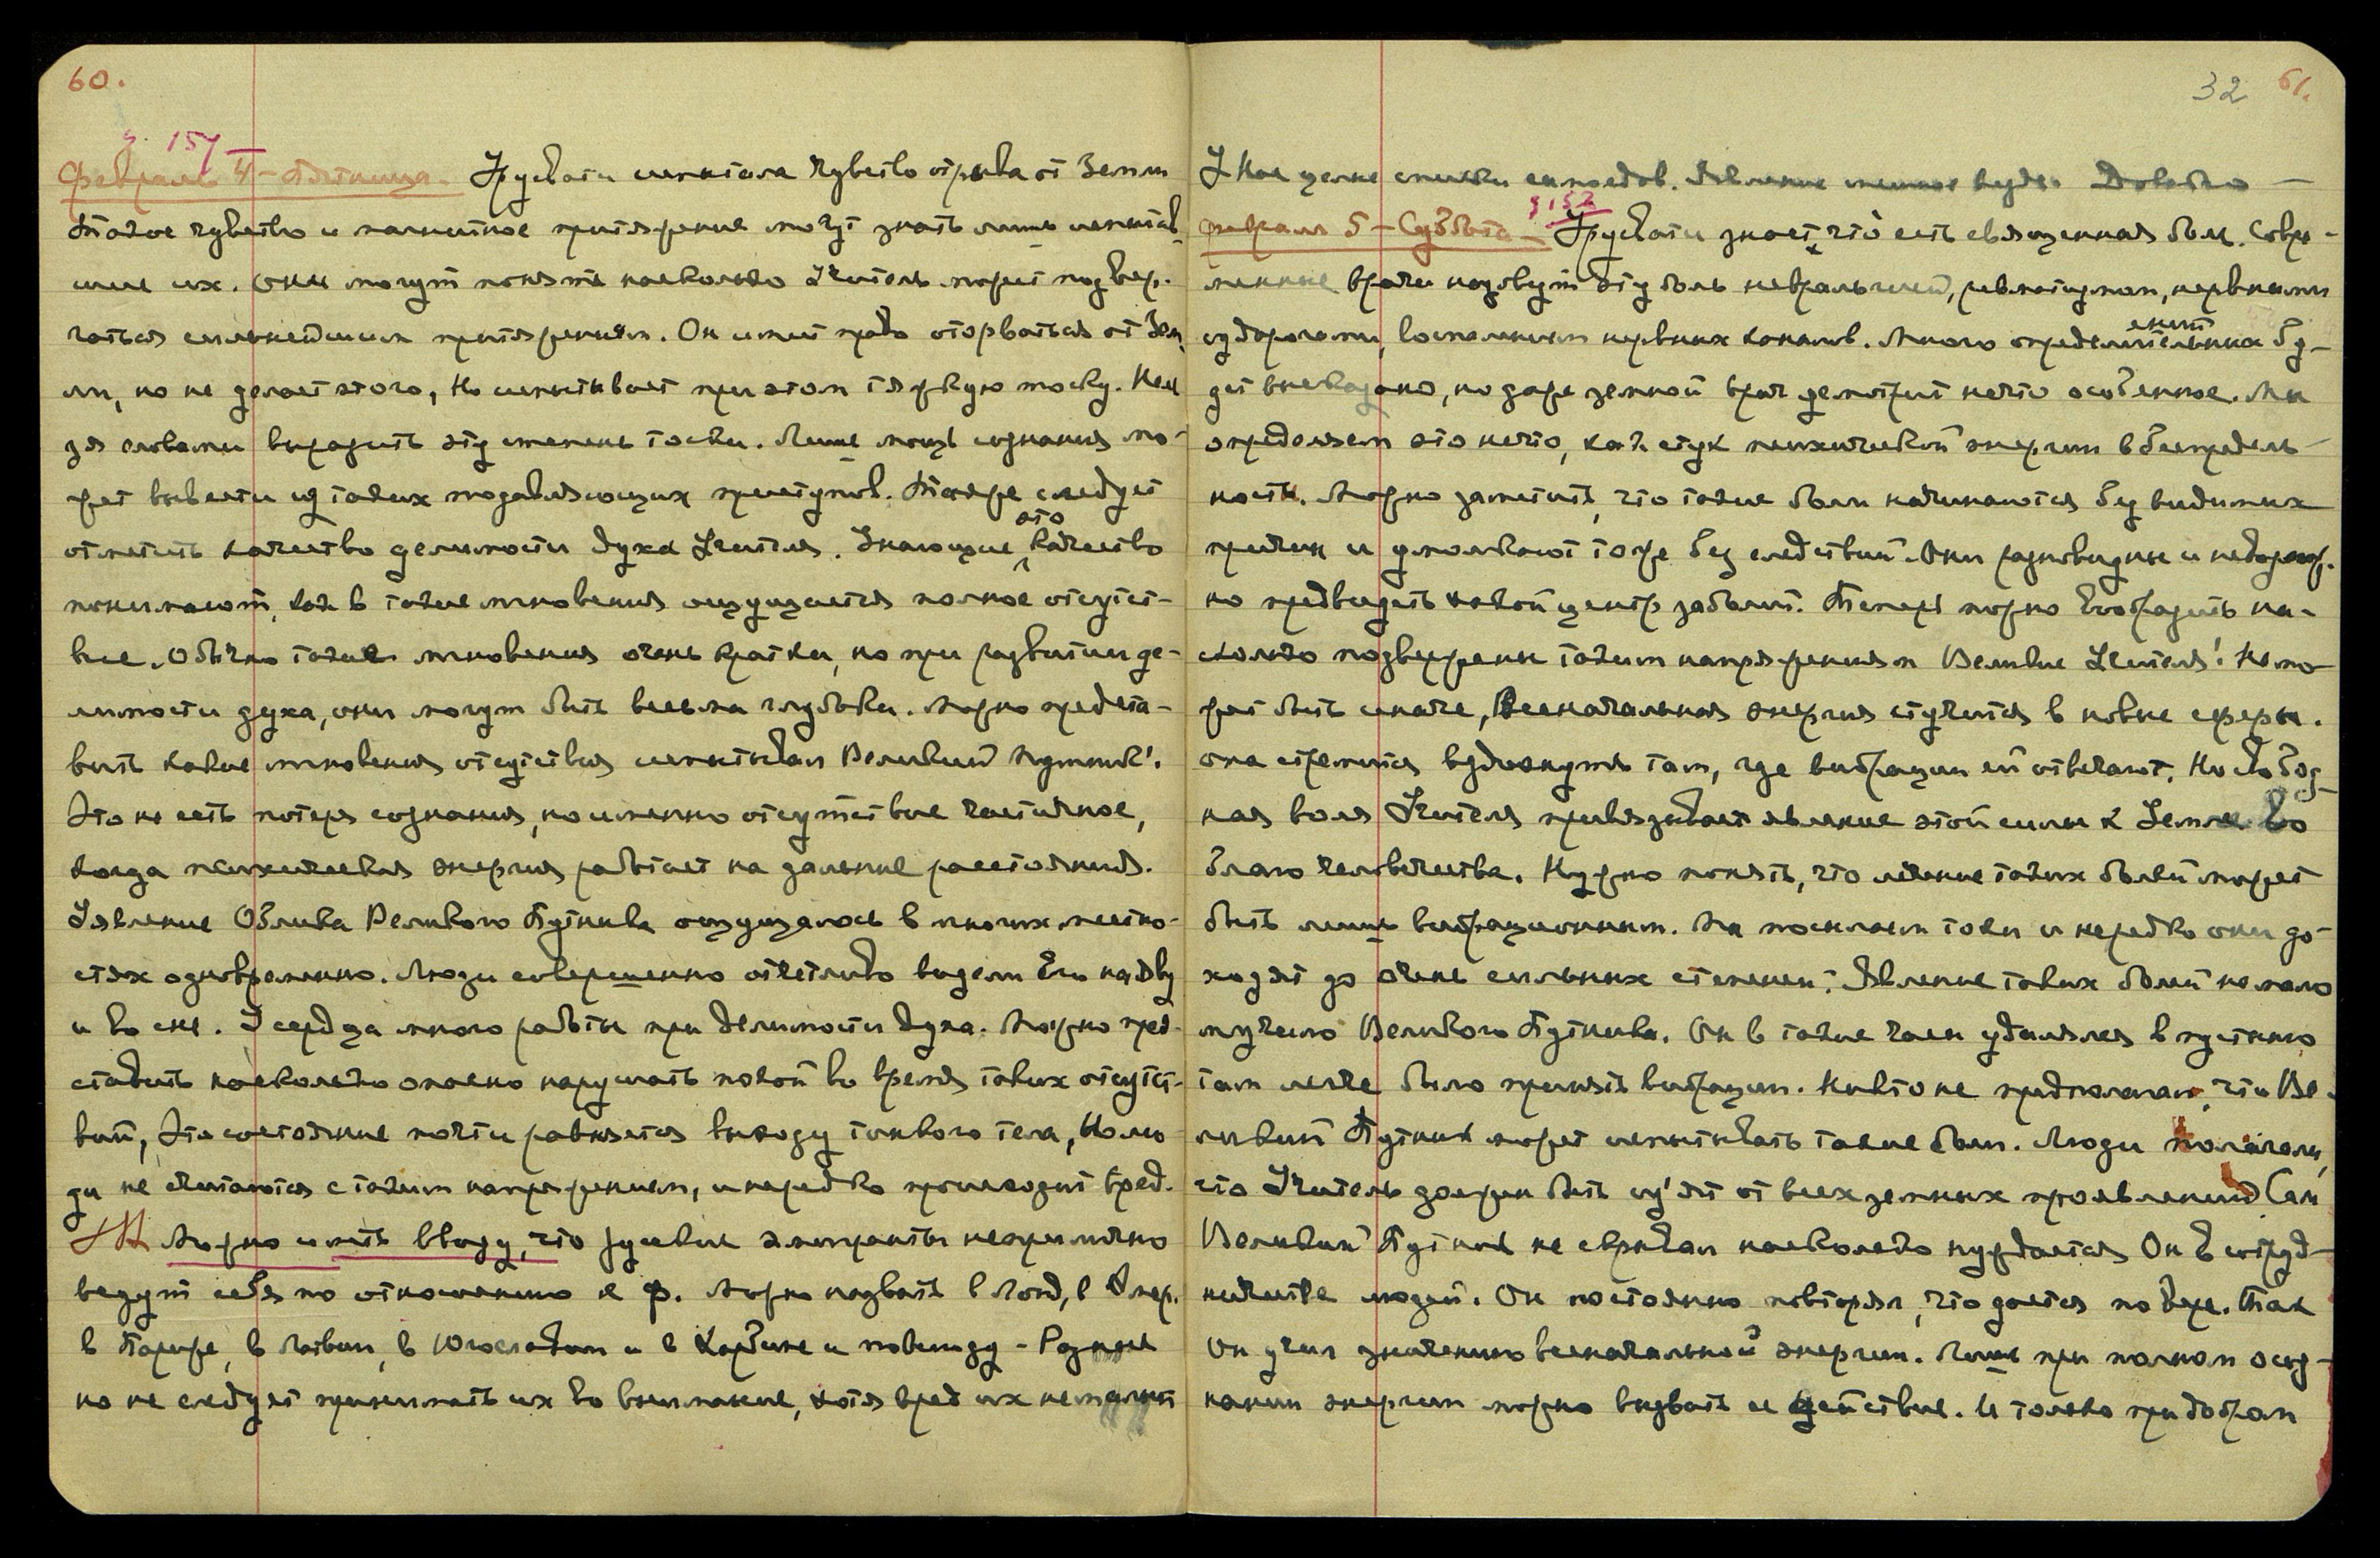 60.
§ 157
Февраль 4 – Пятница. Урусвати испытала чувство отрыва от Земли
Такое чувство и магнитное притяжение могут знать лишь испытав-
шие их. Они могут понять насколько Учитель может подвер-
гаться сильнейшим притяжениям. Он имеет право оторваться от Зем-
ли, но не делает этого, но испытывает при этом тяжкую тоску. Нель
зя словами выразить эту степень тоски. Лишь мощь сознания мо-
жет вывести из таких подавляющих приступов. Также следует
отметить качество делимости духа Учителя. Знающие это качество
понимают, как в такие мгновения ощущается полное отсутст-
вие. Обычно такие мгновения очень кратки, но при развитии де-
лимости духа, они могут быть весьма глубоки. Можно предста-
вить какие мгновения отсутствия испытывал Великий Путник!
Это не есть потеря сознания, но именно отсутствие частичное,
когда психическая энергия работает на дальние расстояния.
Явление Облика Великого Путника ощущалось в многих местно-
стях одновременно. Люди совершенно отчетливо видели Его наяву
и во сне. У сердца много работы при делимости духа. Можно пред-
ставить насколько опасно нарушать покой во время таких отсутст-
вий, Это состояние почти равняется выходу тонкого тела, Но лю
ди не считаются с таким напряжением, и нередко происходит вред.
Можно иметь ввиду, что русские эмигранты неприлично
ведут себя по отношению к Ф. Можно назвать в Лонд, в Амер.
в Париже, в Латвии, в Югославии и в Харбине и повсюду – Разные
но не следует принимать их во внимание, хотя вред их немалый
32 61.
У Нас целые списки ехноедов. Явление мешное будет Довольно —
§ 158
февраля 5 – Суббота – Урусвати знает, что есть священная боль. Совре-
менные врачи назовут эту боль невральгией, ревматизмом, нервными
судорогами, воспалением нервных каналов. Много определений бу-
дет высказано, но даже земной врач усмотрит нечто особенное. Мы
определяем это нечто, как стук психической энергии в беспредель-
ность. Можно заметить, что такие боли начинаются без видимых
причин и умолкают тоже без следствий. Они разновидны и невозмож-
но предвидеть какой центр заболит. Теперь можно вообразить на-
сколько подвержены таким напряжениям Великие Учителя! Не мо-
жет быть иначе, Всеначальная энергия стучится в новые сферы.
она стремится вздохнуть там, где вибрации ей отвечают. Но свобод-
ная воля Учителя привязывает явление этой силы к Земле во
благо человечества. Нужно понять, что лечение таких болей может
быть лишь вибрационным. Мы посылаем токи и нередко они до-
ходят до очень сильных степеней. Явление таких болей немало
мучило Великого Путника. Он в такие часы удалялся в пустыню
там легче было принять вибрации. Никто не предполагал, что Ве-
ликий Путник может испытывать такие боли. Люди полагали,
что Учитель должен быть из'ят от всех земных проявлений Сам
Великий Путник не скрывал насколько нуждается Он в сотруд-
ничестве людей. Он постоянно повторял, что дается по вере. Так
Он учил значению всеначальной энергии. Лишь при полном осоз-
нании энергии можно вызвать ее действие. И только при добром